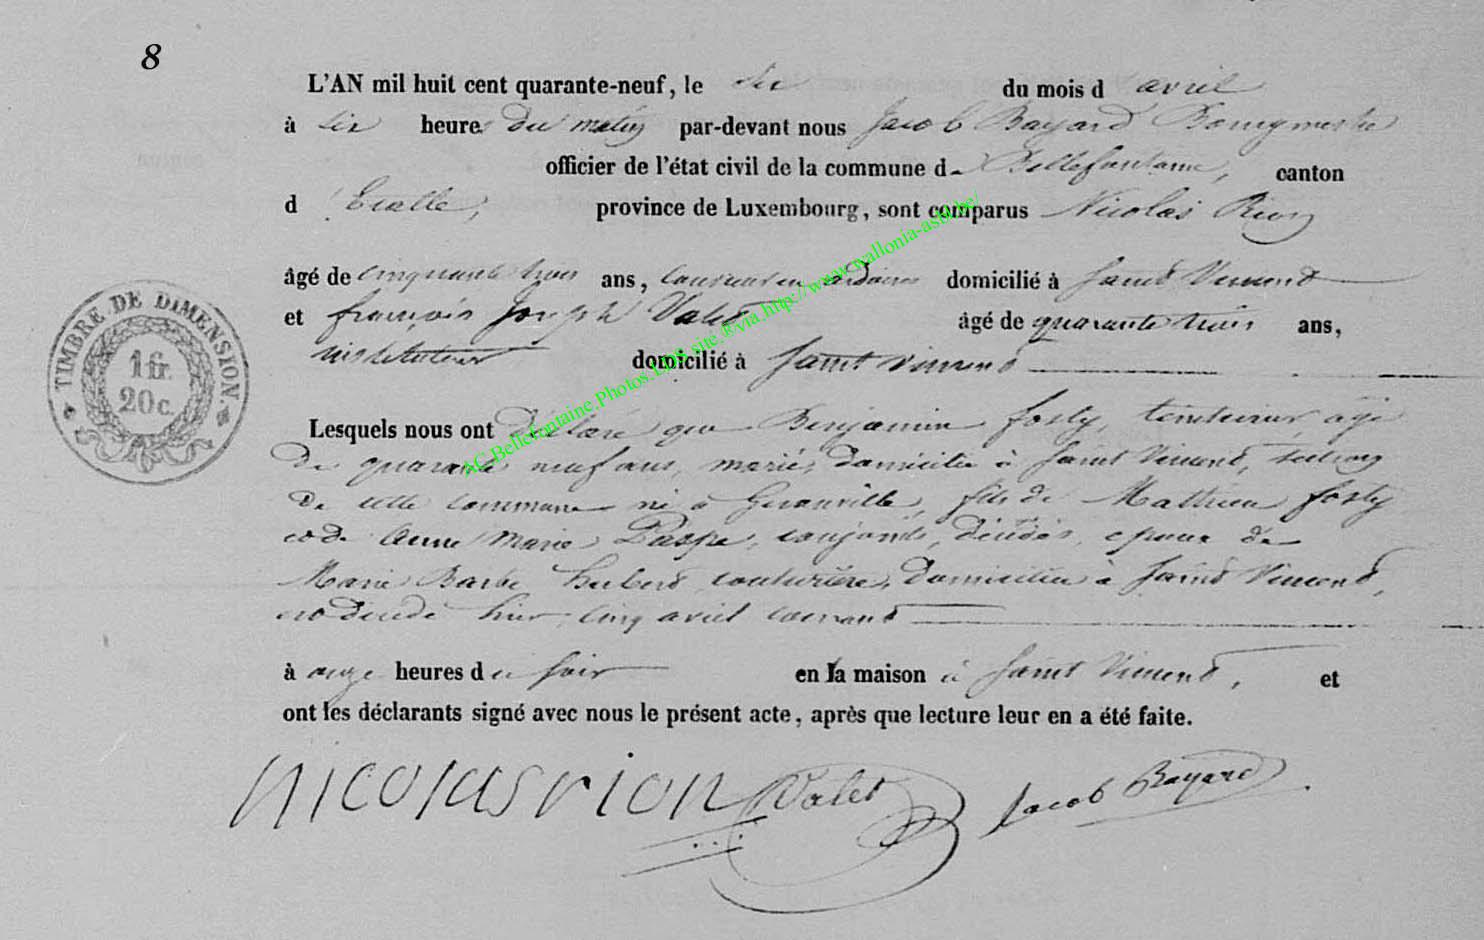 8
L'AN mil huit cent quarante-neuf, le six du mois d avril
à six heures du matin par-devant nous Jacob Bayard Bourgmestre
officier de l'état civil de la commune de Bellefontaine, canton
d'Etalle, province de Luxembourg, sont comparus Nicolas Rion
âgé de cinquante trois ans, couvreur en ardoises domicilié à Saint Vincent
et françois Joseph Valet âgé de quarante trois ans,
instituteur domicilié à Saint Vincent
Lesquels nous ont déclaré que Benjamin forty, âgé
de quarante neuf ans, marié, domicilié à Saint Vincent, section
de cette commune né à Gerouville, fils de Mathieu forty
et de Anne Marie conjoints, décédés, epoux de
Marie Barbe Hubert couturière, domiciliée à Saint Vincent,
est décédé hier, cinq avril courant
à onze heures du soir en la maison à Saint Vincent, et
ont les déclarants signé avec nous le présent acte, après que lecture leur en a été faite.
nicolas rion Valet Jacob Bayard
TIMBRE DE DIMENSION.
1 fr.
20 c.
AC.Bellefontaine.Photos.LDS.site.®via.http://www.wallonia-asbl.be/